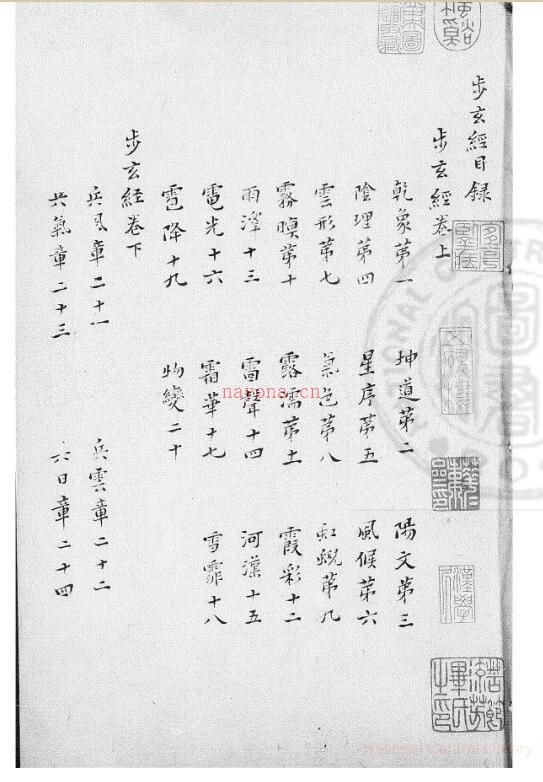 步玄經目録
步玄經卷上
乾象第一 坤道第二 陽文第三
陰理第四 星序第五 風候第六
雲形第七 氣色第八 虹蜺第九
霧暝第十 露濡第十一 霞彩十二
雨澤十三 雷聲十四 河漢十五
電光十六 霜華十七 雪霏十八
雹降十九 物變二十
步玄經卷下
兵風章二十一 兵雲章二十二
兵氣章二十三 六日章二十四
nayona.cn
National Central Library